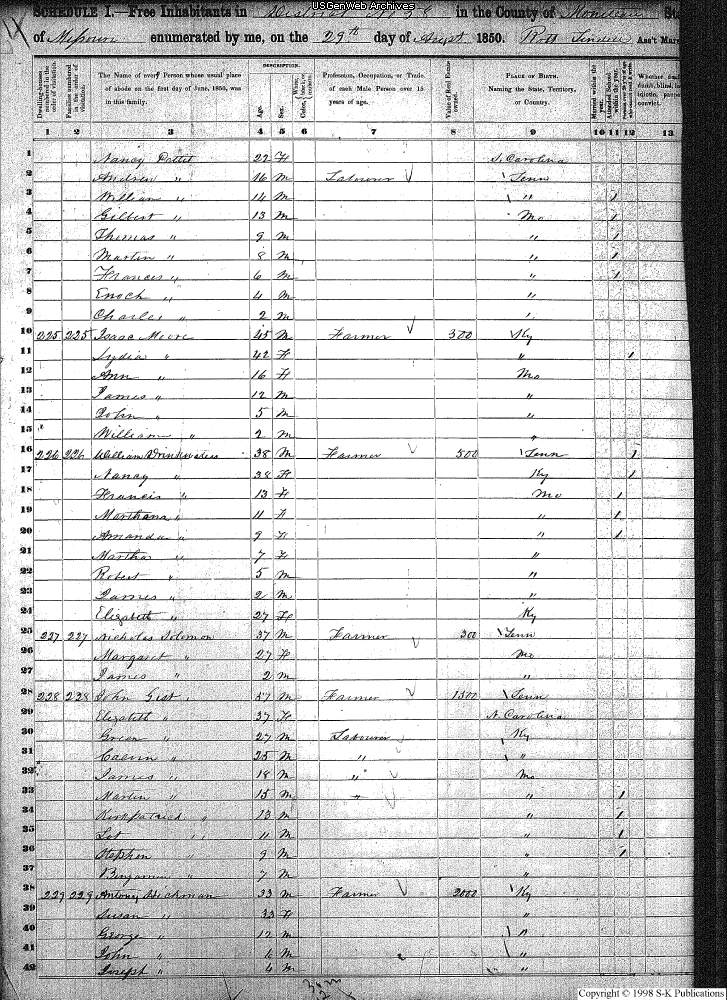 USGenWeb Archives
SCHEDULE I.—Free Inhabitants in in the County of Moniteau
of Missouri enumerated by me, on the 29th day of Sept 1850. Ass't Mars
DESCRIPTION.
Dwelling-houses, numbered in the order of visitation. Families numbered in the order of visitation. The Name of every Person whose usual place of abode on the first day of June, 1850, was in this family. Age. Sex. Color, Profession, Occupation, or Trade of each Male Person over 15 years of age. Value of Real Estate owned. PLACE OF BIRTH. Naming the State, Territory, or Country. Married within the year. Attended School within the year. Whether deaf
1 2 3 4 5 6 7 8 9 10 11 12 13
1 Nancy 22 F S. Carolina
2 Andrew " 16 M Labourer Tenn
3 William " 14 M " 1
4 Gilbert " 13 M Mo 1
5 Thomas " 9 M " 1
6 Martin " 8 M " 1
7 Frances " 6 M " 1
8 Enoch " 4 M "
9 Charles " 2 M "
10 225 225 Isaac Moore 45 M Farmer 300 Ky
11 Lydia " 42 F " 1
12 Ann " 16 F Mo
13 James " 12 M "
14 John " 5 M "
15 William " 2 M "
16 226 226 William Drinkwater 38 M Farmer 500 Tenn 1
17 Nancy " 38 F Ky 1
18 Francis " 13 F Mo 1
19 Marthana " 11 F " 1
20 Amanda " 9 F " 1
21 Martha " 7 F "
22 Robert " 5 M "
23 James " 2 M "
24 Elizabeth " 27 F Ky
25 227 227 Nicholas Solomon 37 M Farmer 300 Tenn
26 Margaret " 27 F Mo
27 James " 2 M "
28 228 228 John Gist 57 M Farmer 1500 Tenn
29 Elizabeth " 37 F N. Carolina
30 Green " 27 M Labourer Ky
31 Calvin " 25 M " "
32 James " 18 M " Mo
33 Martin " 15 M " " 1
34 Kirkpatrick " 13 M " 1
35 Lot " 11 M " 1
36 Stephen " 9 M " 1
37 Benjamin " 7 M "
38 229 229 Antony Hickman 33 M Farmer 2000 Ky
39 Susan " 33 F "
40 George " 12 M "
41 John " M "
42 Joseph " 4 M "
Copyright © 1998 S-K Publications